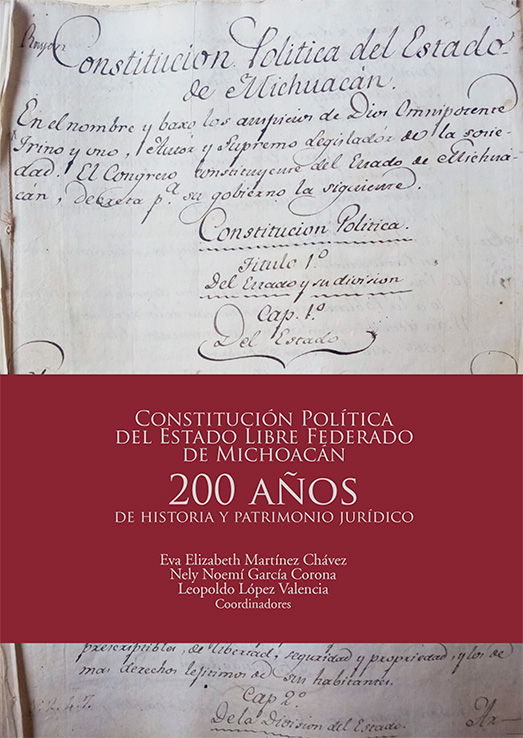 Constitucion Politica del Estado
de Michuacán.
En el nombre y baxo los auspicios de Dios Omnipotente
Trino y uno, Autor y Supremo legislador de la socie-
dad. El Congreso constituyente del Estado de Michua-
cán, decreta p.ª su gobierno la siguiente.
Constitucion Politica.
Titulo 1.º
Del Estado y su division
Cap. 1.º
Del Estado
CONSTITUCIÓN POLÍTICA
DEL ESTADO LIBRE FEDERADO
DE MICHOACÁN
200 AÑOS
DE HISTORIA Y PATRIMONIO JURÍDICO
Eva Elizabeth Martínez Chávez
Nely Noemí García Corona
Leopoldo López Valencia
Coordinadores
prescriptibles, de libertad, seguridad y propiedad, y los de
mas derechos lejitimos de sus habitantes.
Cap 2.º
De la Division del Estado.